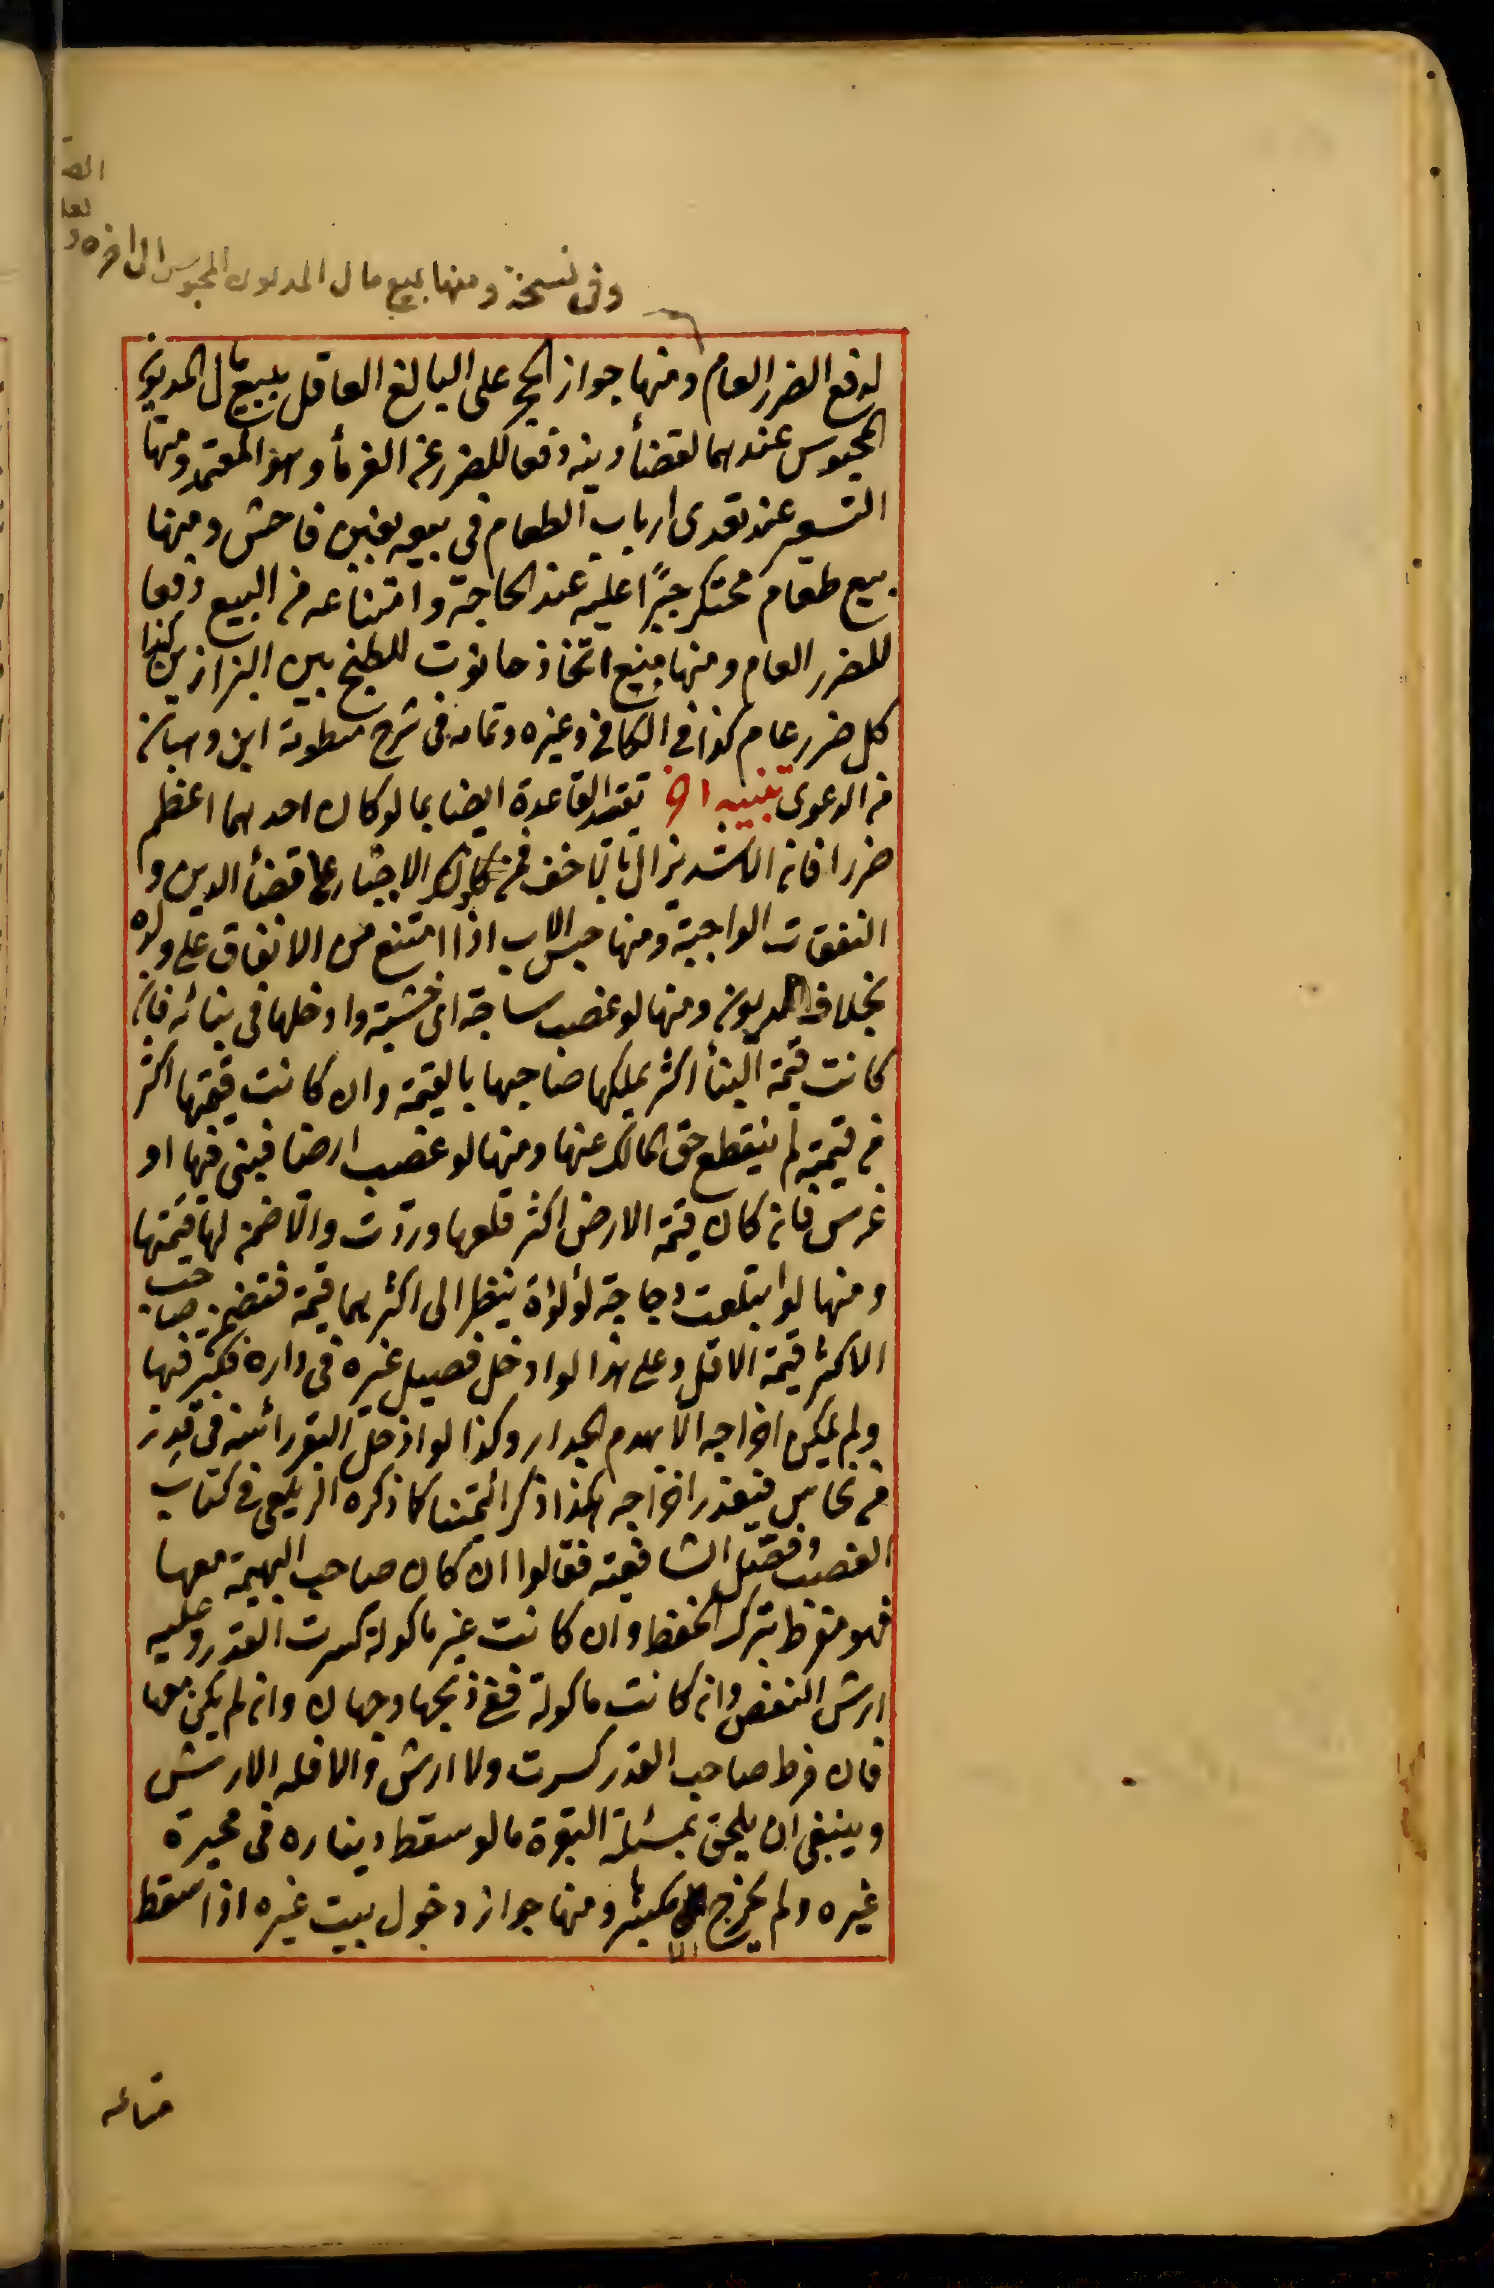 وفى نسخة ومنها بيع مال المديون المحبوس الى اخره
لدفع الضرر العام ومنها جواز الحجر على البالغ العاقل ببيع مال المديون
المحبوس عندهما لقضأ دينه دفعا للضرر عن الغرمأ وهو المعتمد ومنها
التسعير عند تعدى ارباب الطعام فى بيعه بغبن فاحش ومنها
بيع طعام محتكر جبرًا عليه عند الحاجة وامتناعه من البيع دفعا
للضرر العام ومنها منع اتخاذ حانوت للطبخ بين البزازين كذا
كل ضرر عام كذا فى الكافى وغيره وتمامه فى شرح منظومة ابن وهبان
من الدعوى تنبيه اخر تقيد القاعدة ايضا بما لو كان احدهما اعظم
ضررا فان الاشد يزال بالاخف فمن ذلك الاجبار على قضأ الدين و
النفقات الواجبة ومنها حبس الاب اذا امتنع من الانفاق على ولده
بخلاف المديون ومنها لو غصب ساجة اى خشبة وادخلها فى بنائه فان
كانت قيمة البنأ اكثر يملكها صاحبها بالقيمة وان كانت قيمتها اكثر
من قيمته لم ينقطع حق المالك عنها ومنها لو غصب ارضا فبنى فيها او
غرس فان كان قيمة الارض اكثر قلعها وردت والا ضمن لها قيمتها
ومنها لو ابتلعت دجاجة لؤلؤة ينظر الى اكثرهما قيمة فتضمن صاحب
الاكثر قيمة الاقل وعلى هذا لو ادخل فصيل غيره فى داره فكبر فيها
ولم يمكن اخراجه الا بهدم الجدار وكذا لو ادخل البقر رائسه فى قدر
من نحاس فتعذر اخراجه هكذا ذكر ائمتنا كما ذكره الزيلعى فى كتاب
الغصب وفصّل الشافعية فقالوا ان كان صاحب البهيمة معها
فهو مفرط بترك الحفظ وان كانت غير ماكولة كسرت القدر وعليه
ارش النقص وان كانت ماكولة ففى ذبحها وجهان وان لم يكن معها
فان فرط صاحب القدر كسرت ولا ارش والا فله الارش
وينبغى ان يلحق بمسئلة البقرة ما لو سقط ديناره فى محبرة
غيره ولم يخرج الا بكسرها ومنها جواز دخول بيت غيره اذا سقط
متاعه